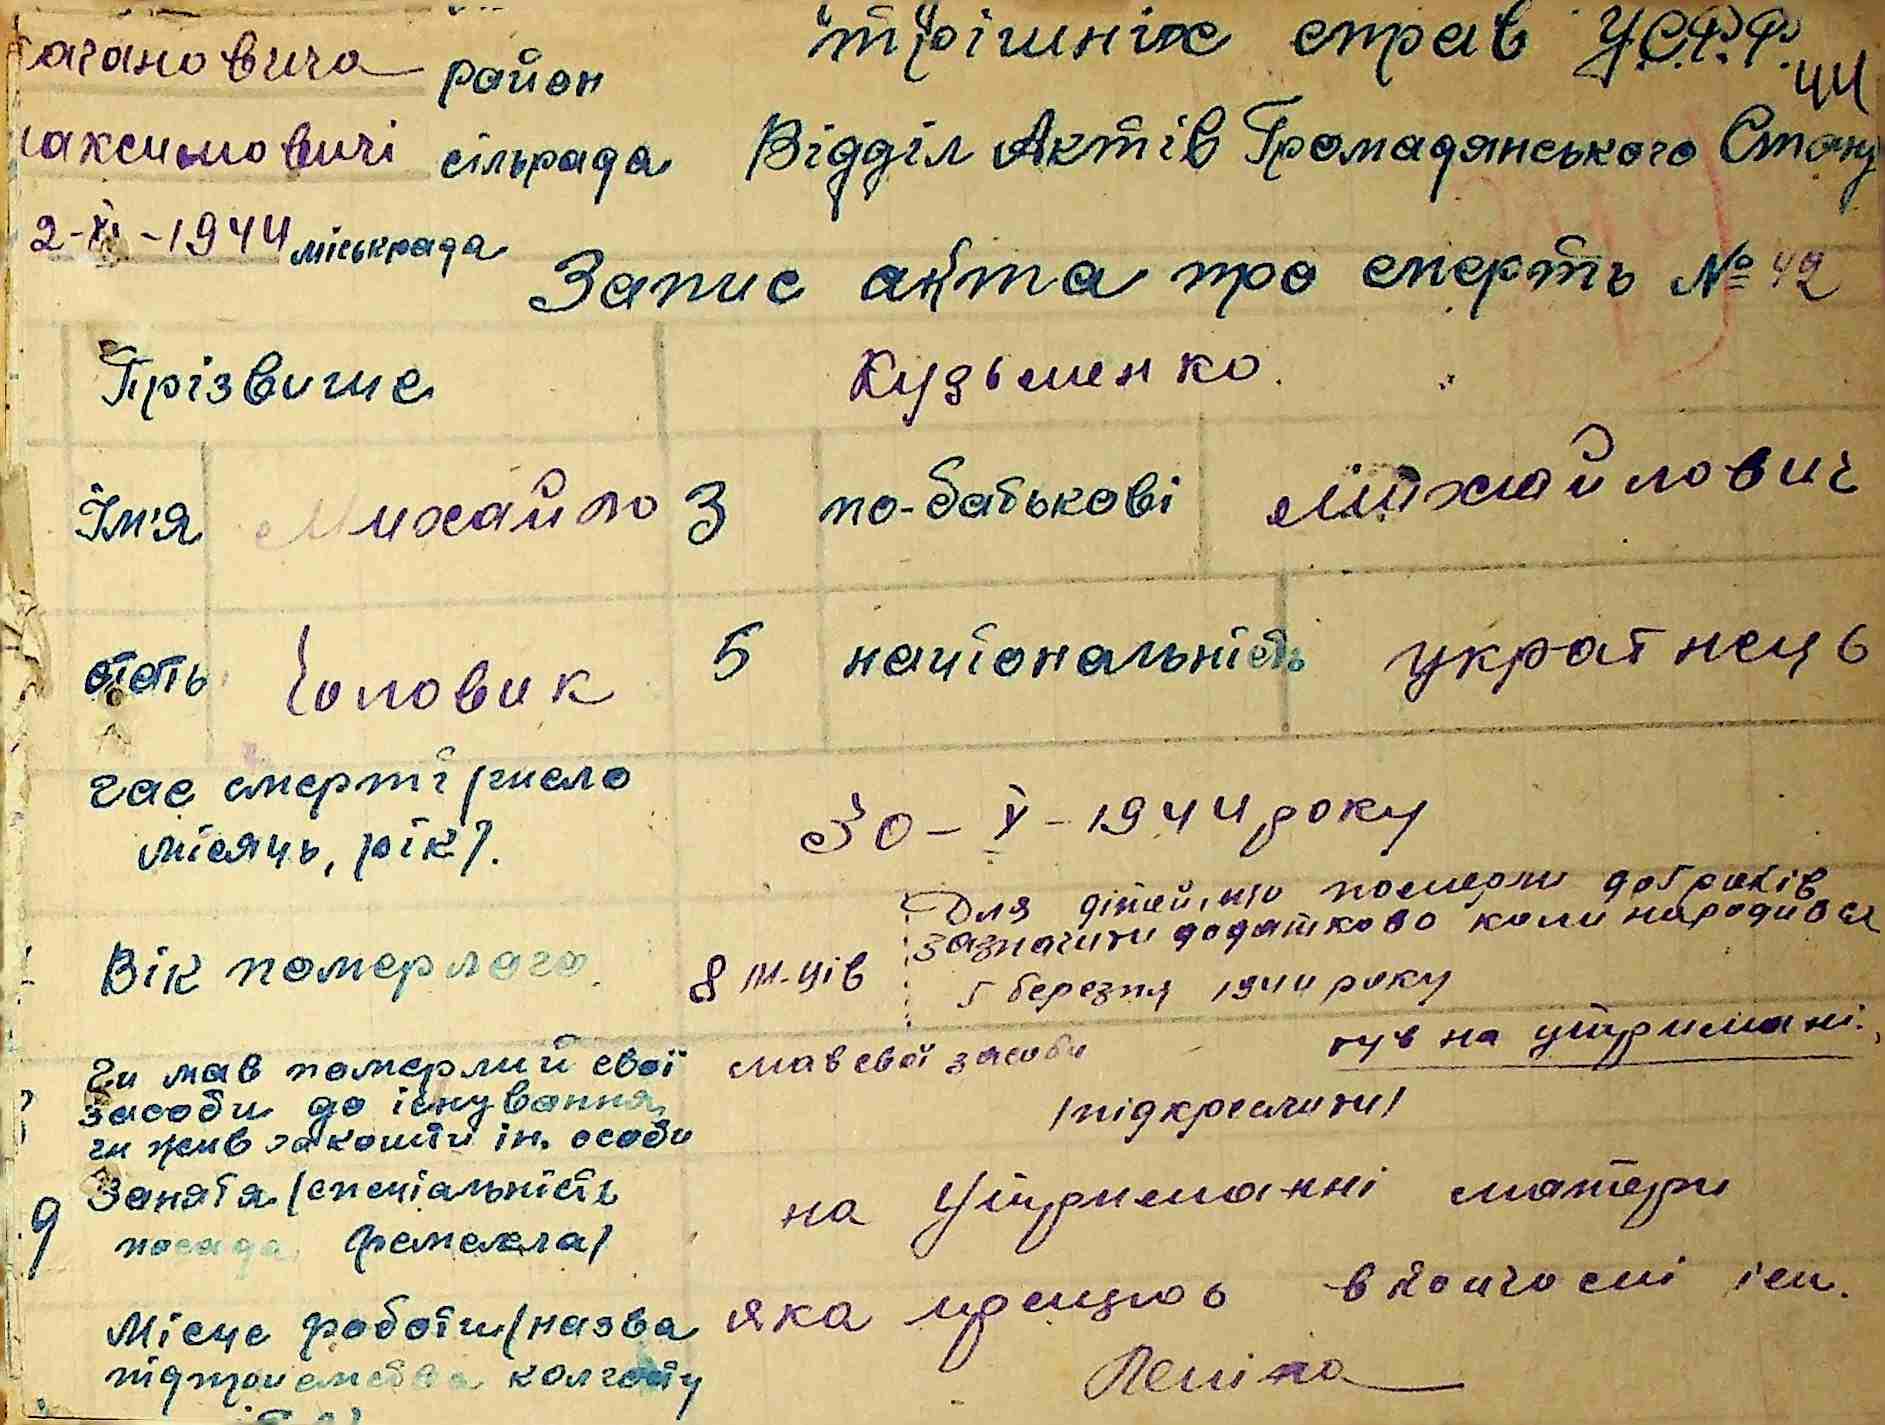 район
трішніх справ У.С.Р.Р. 44
сільрада Відділ Актів Громадянського Стану
2-XI-1944 міськрада
Запис акта про смерть № 42
Прізвише Кузьменко.
Їм'я Михайло 3 по-батькові Михайлович
Чоловик 5 національність украінець
час смерті /число
місяць, рік/. 30-X-1944 року
Для дітей, що померли до 1 років
зазначити додатково коли народився
Вік померлого 8 м-ців
5 березня 1944 року
Чи мав померлий свої мав свої засоби був на утримані.
засоби до існування /підкреслити/
чи жив за кошти ін. особи
9 Заняття /спеціальність на Утриманні матери
посада, ремесла/
Місце роботи /назва яка працює в колгоспі ім.
підприємства колгоспу Леніна